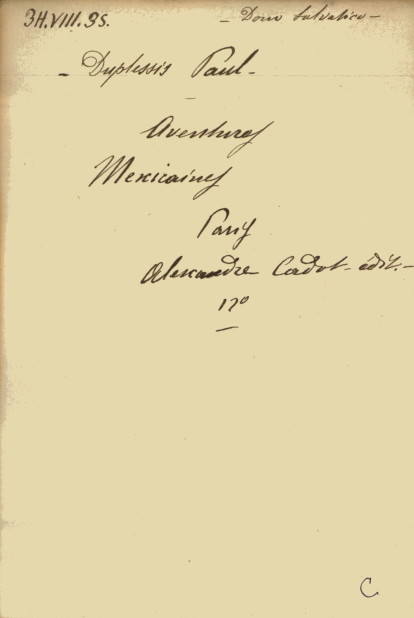 3H.VIII.35. – Dono Salvatico –
– Duplessis Paul –
Aventures
Mexicaines
Paris
Alexandre Cadot – édit. –
12º
C